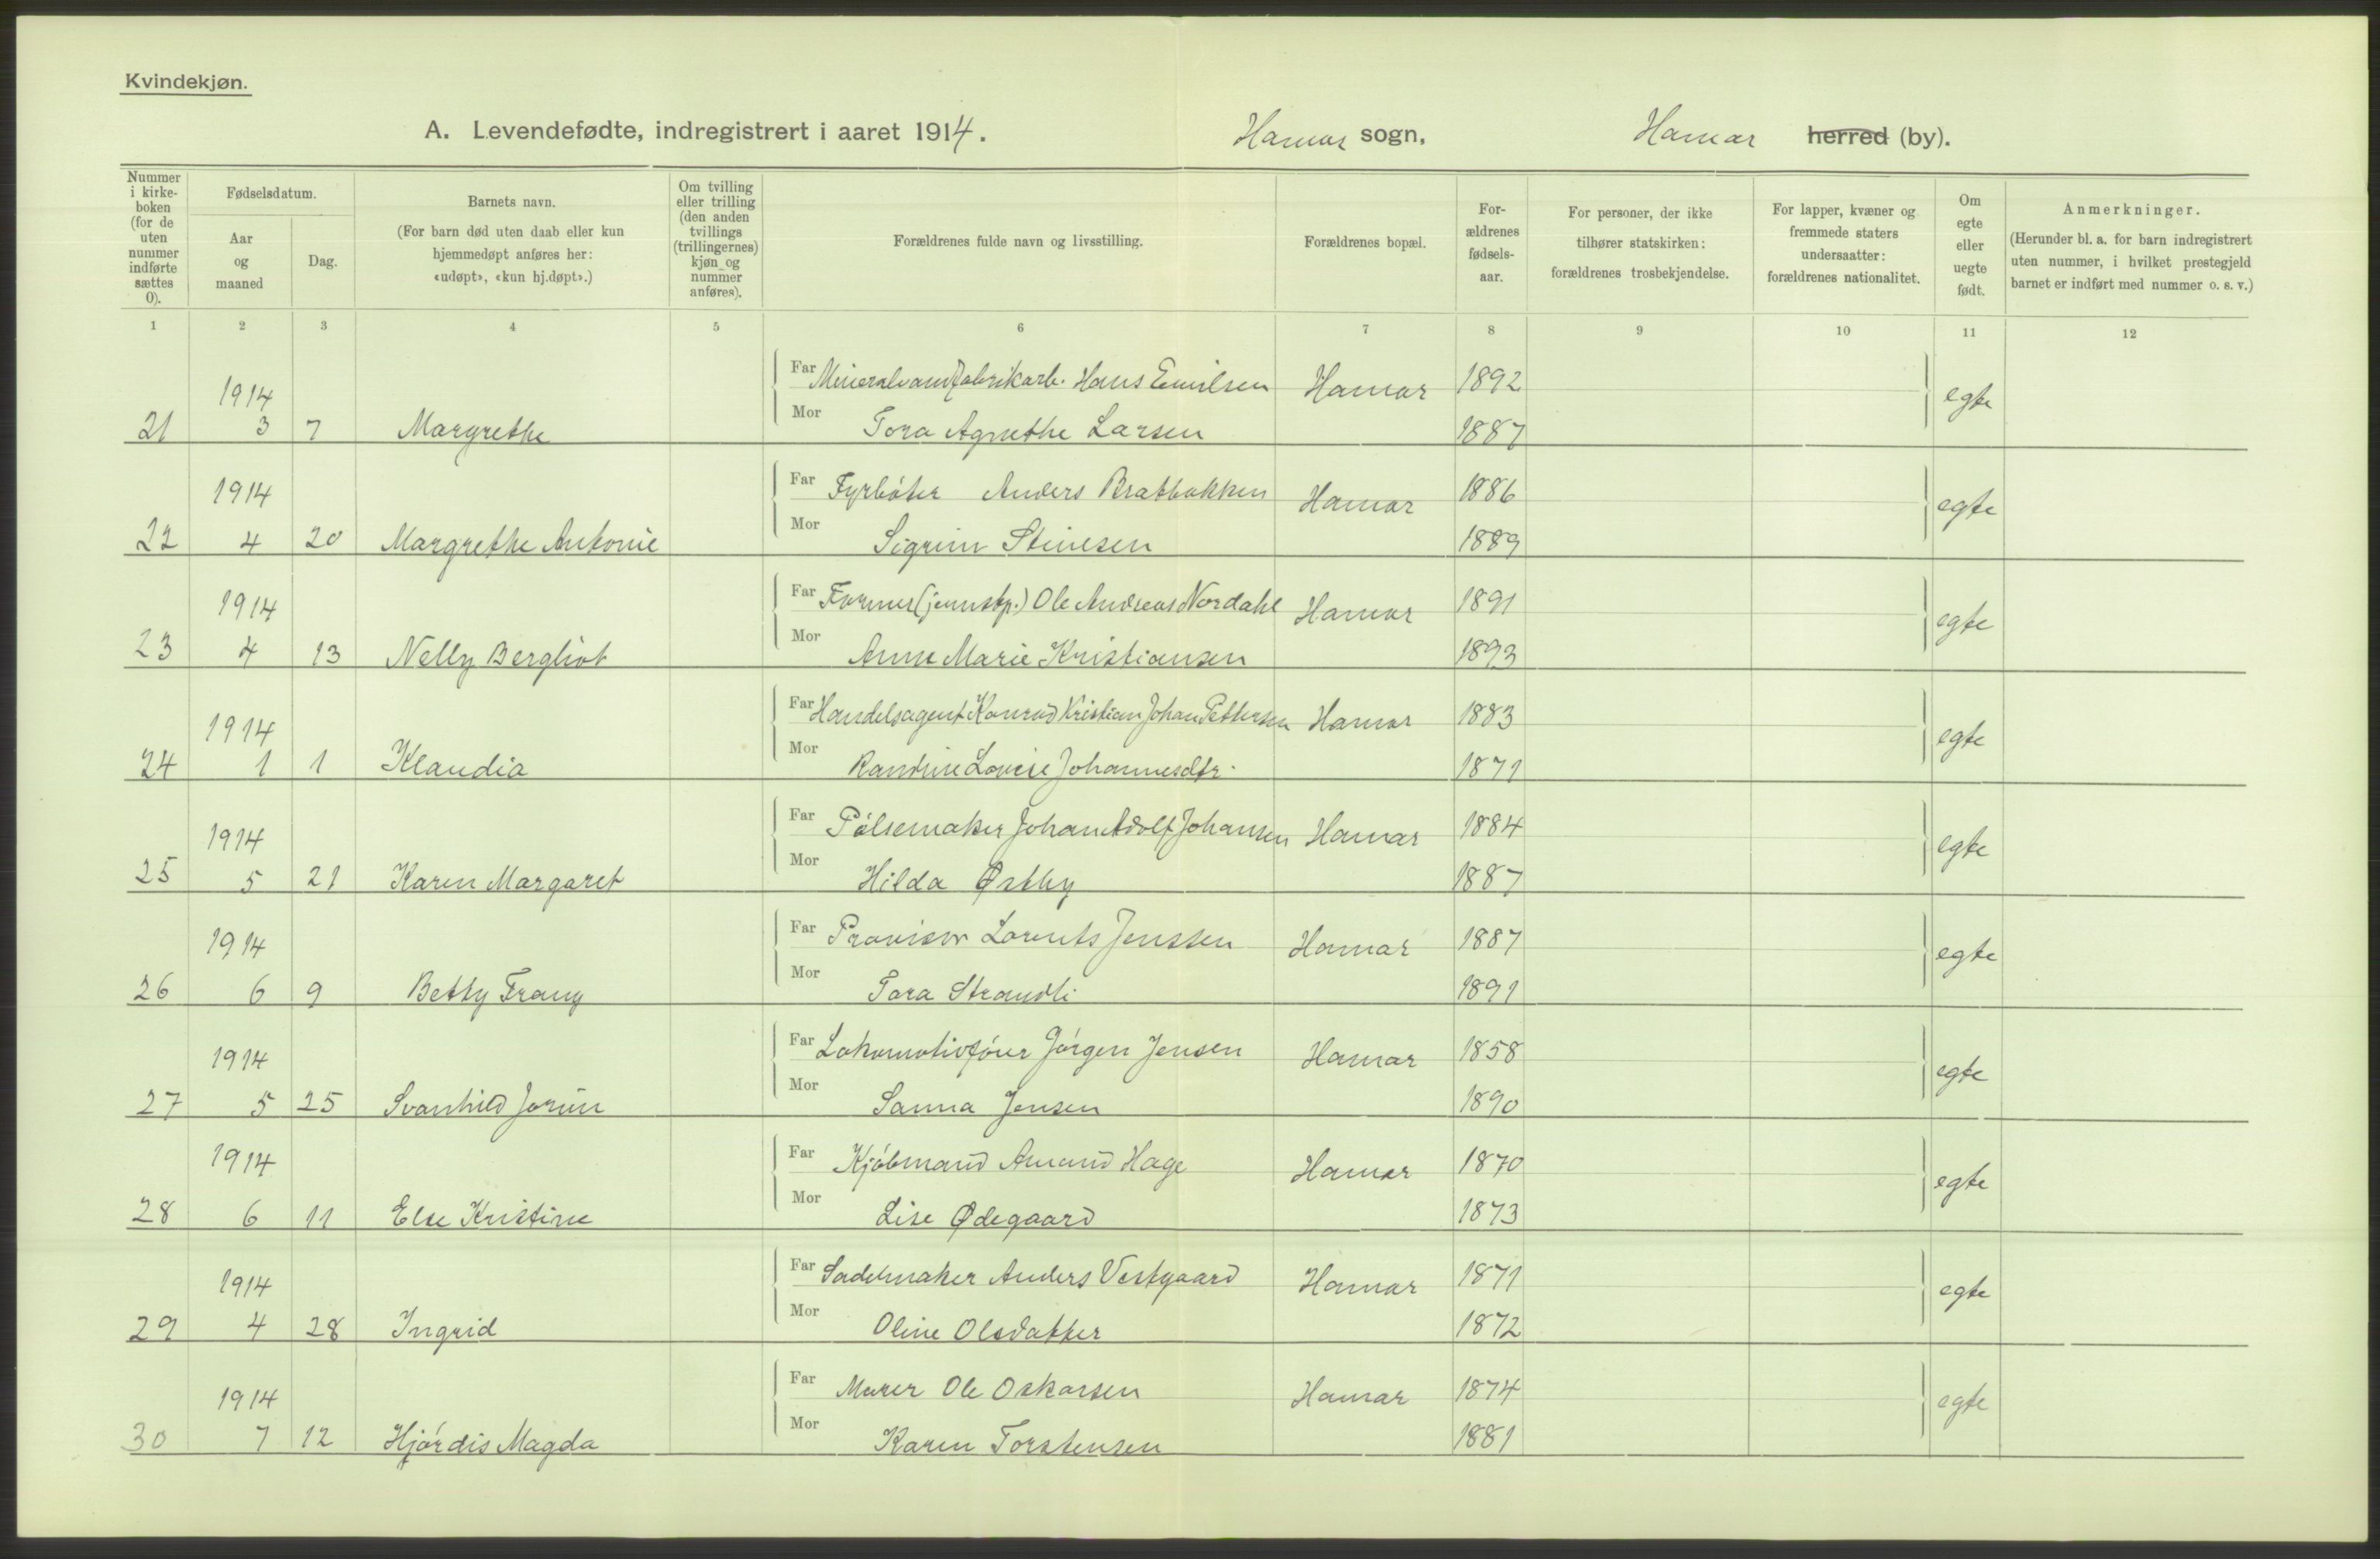 Kvindekjøn.
A. Levendefødte, indregistrert i aaret 1914. Hamar sogn, Hamar herred (by).
Nummer i kirkeboken (for de uten nummer indførte sættes 0).
Fødselsdatum.
Aar og maaned
Dag.
Barnets navn.
(For barn død uten daab eller kun hjemmedøpt anføres her: «udøpt», «kun hj.døpt».)
Om tvilling eller trilling (den anden tvillings (trillingernes) kjøn og nummer anføres).
Forældrenes fulde navn og livsstilling.
Forældrenes bopæl.
Forældrenes fødselsaar.
For personer, der ikke tilhører statskirken: forældrenes trosbekjendelse.
For lapper, kvæner og fremmede staters undersaatter: forældrenes nationalitet.
Om egte eller uegte født.
Anmerkninger.
(Herunder bl. a. for barn indregistrert uten nummer, i hvilket prestegjeld barnet er indført med nummer o. s. v.)
1 2 3 4 5 6 7 8 9 10 11 12
Far Mineralvandfabrikarb. Hans Emilsen Hamar 1892 egte
1914
21 3 7 Margrethe Mor Tora Agnethe Larsen 1887
Far Fyrbøter Anders Bratbakken Hamar 1886 egte
1914
22 4 20 Margrethe Antonie Mor Sigrun Stinesen 1889
Far Former (jernstøp.) Ole Andreas Nordahl Hamar 1891 egte
1914
23 4 13 Nelly Bergliot Mor Anne Marie Kristiansen 1893
Far Handelsagent Konrad Kristian Johan Pettersen Hamar 1883 egte
1914
24 1 1 Klaudia Mor Randine Lovise Johannesdtr. 1871
Far Pølsemaker Johan Adolf Johansen Hamar 1884 egte
1914
25 5 21 Karen Margaret Mor Hilda Østby 1887
Far Provisor Lorents Jenssen Hamar 1887 egte
1914
26 6 9 Betty Frang Mor Tora Strandli 1891
Far Lokomotivfører Jørgen Jensen Hamar 1858 egte
1914
27 5 25 Svanhild Jorun Mor Sanna Jensen 1890
Far Kjøbmand Amand Hage Hamar 1870 egte
1914
28 6 11 Else Kristine Mor Lise Ødegaard 1873
Far Sadelmaker Anders Vestgaard Hamar 1871 egte
1914
29 4 28 Ingrid Mor Oline Olsdatter 1872
Far Murer Ole Oskarsen Hamar 1874 egte
1914
30 7 12 Hjørdis Magda Mor Karen Torstensen 1881